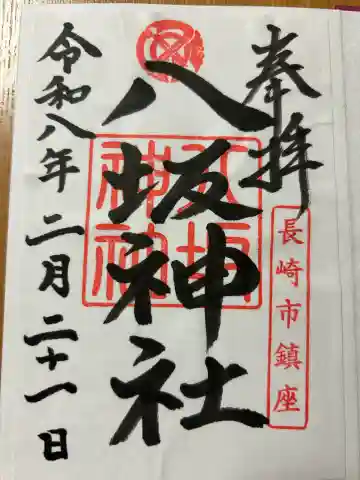 奉拝
長崎市鎮座
八坂神社
令和八年二月二十一日